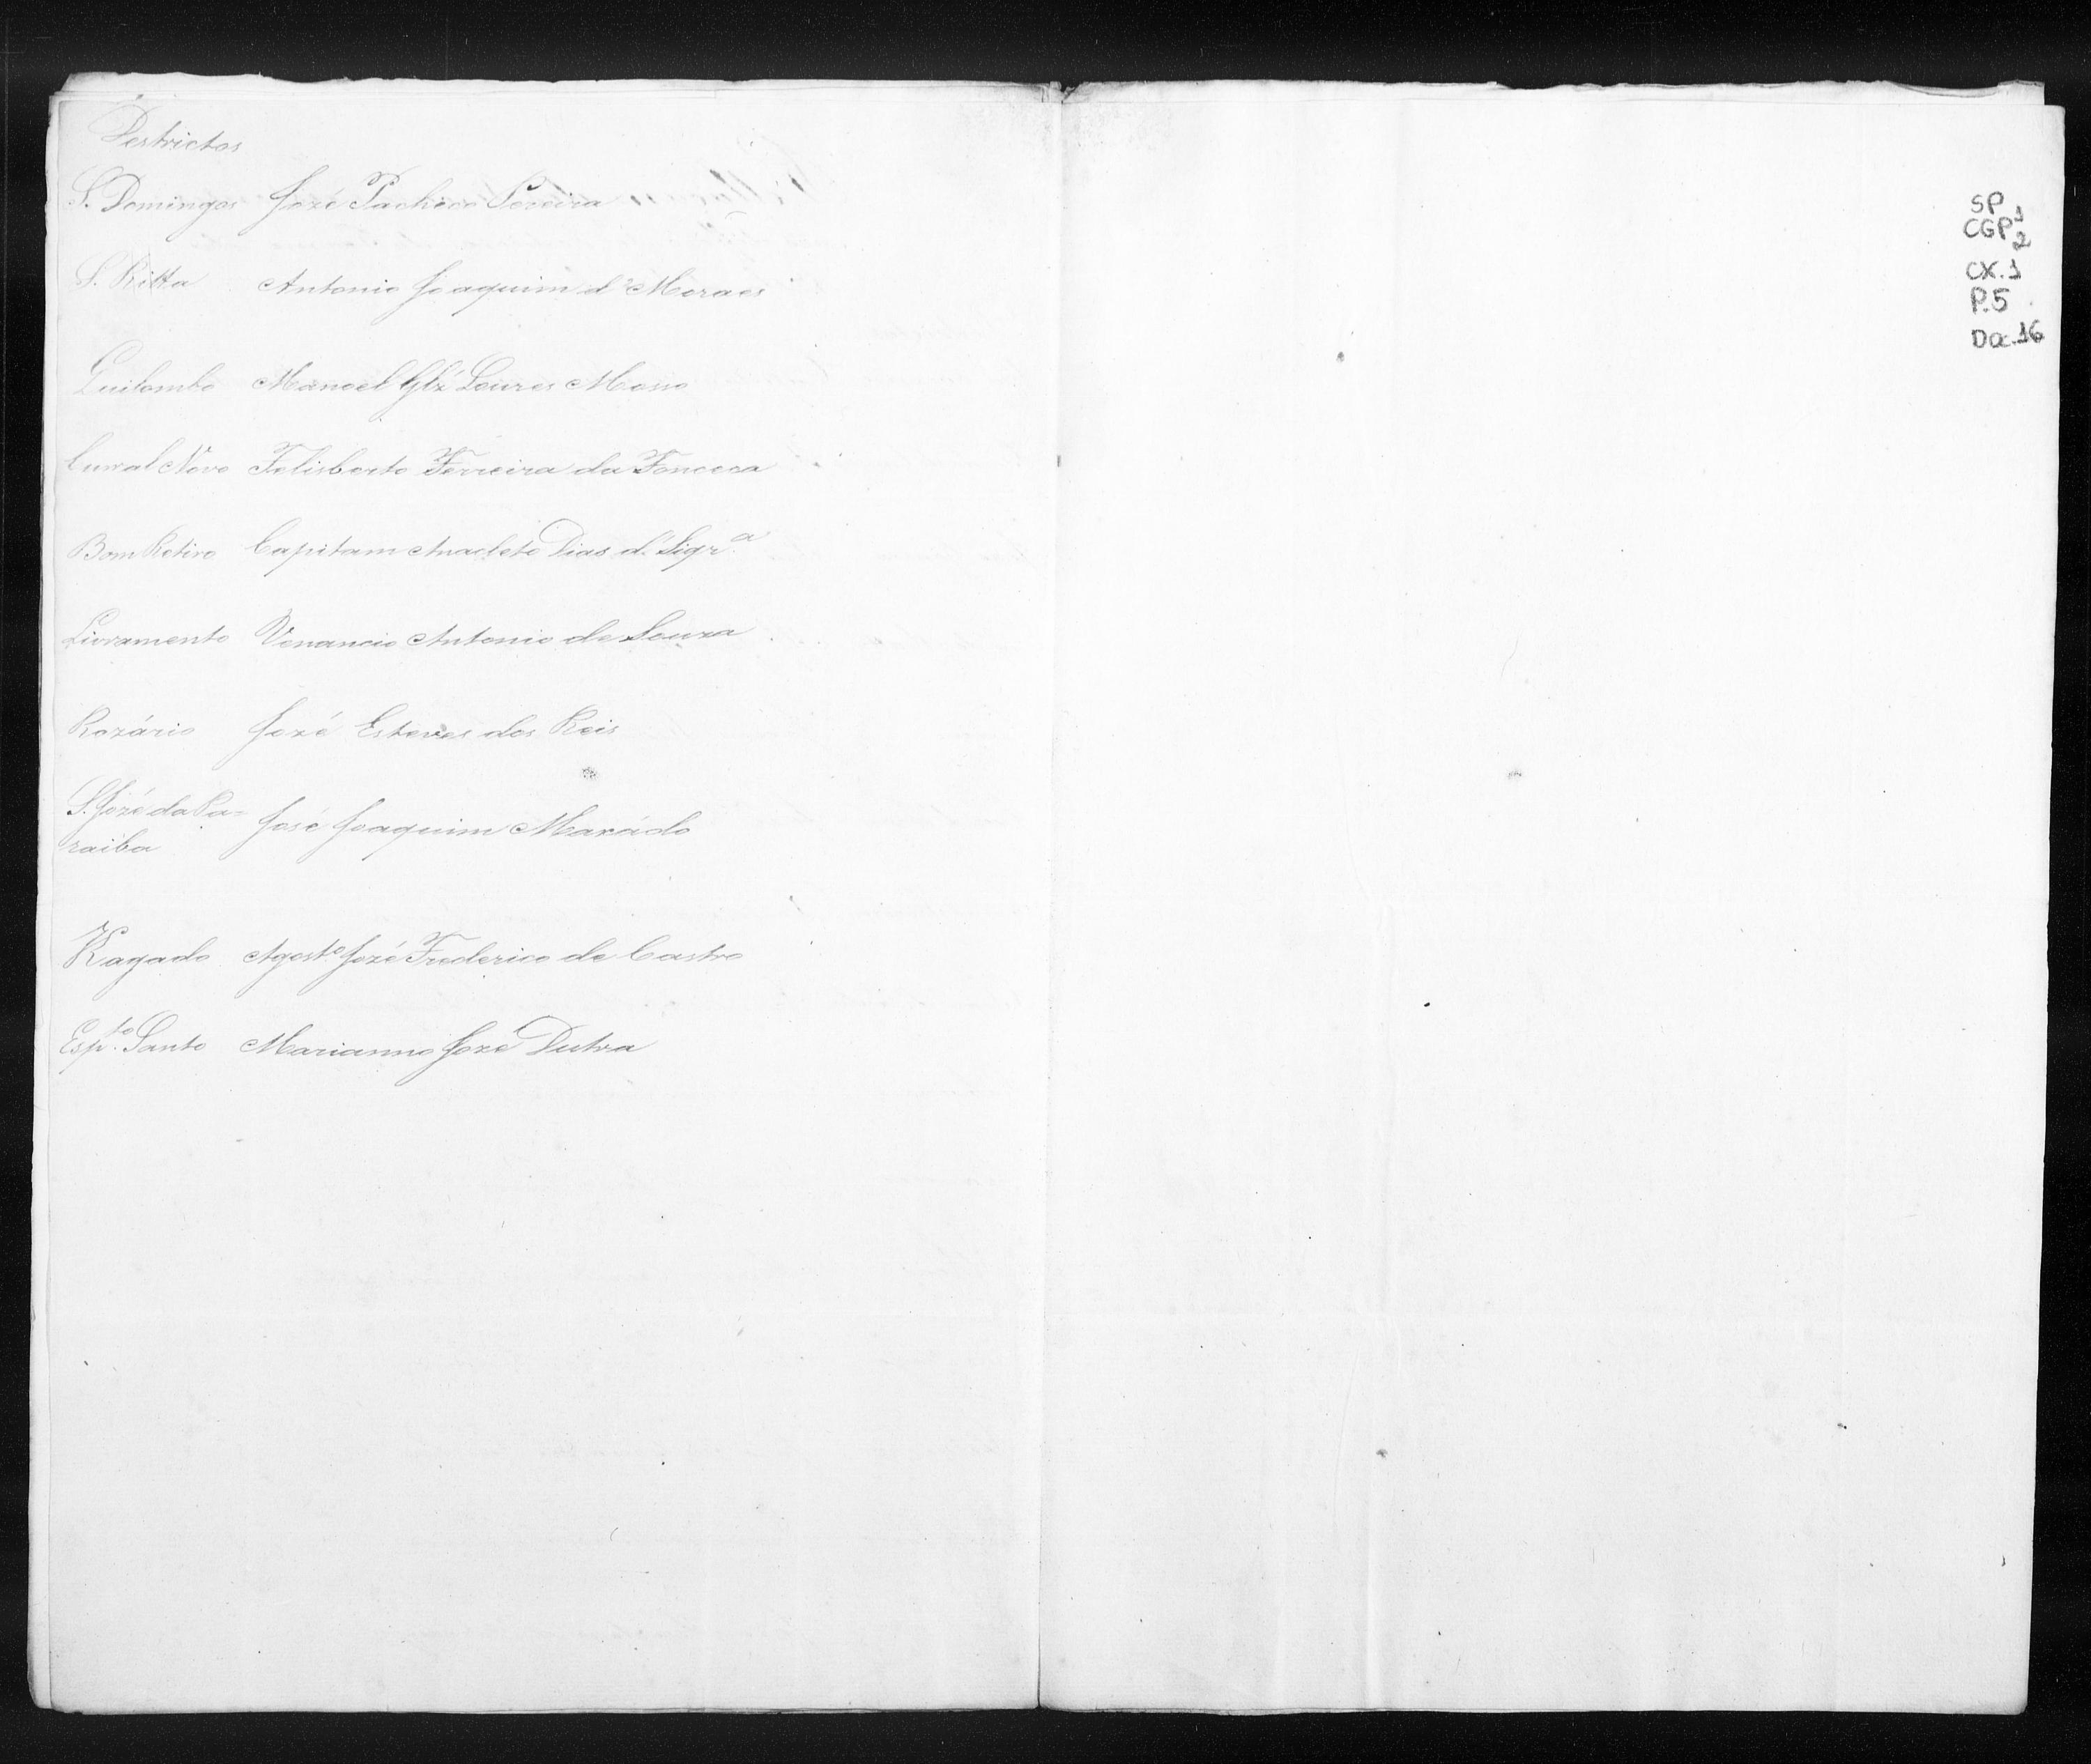 Destrictos
S. Domingos Jozé Pacheco Pereira
S. Ritta Antonio Joaquim d' Moraes
Quilombo Manoel Glz' Loures Mosso
Curral Novo Felisberto Ferreira da Fonceca
Bom Retiro Capitam Anacleto Dias d' Siqr.ª
Livramento Venancio Antonio de Souza
Rozário Jozé Esteves dos Reis
S. Jozé da Pa=
raiba José Joaquim Maxádo
Kagado Agost.º Jozé Frederico de Castro
Esp.to Santo Marianno Jozé Dutra
SP
CGP 1
2
CX.1
P.5
Doc.16